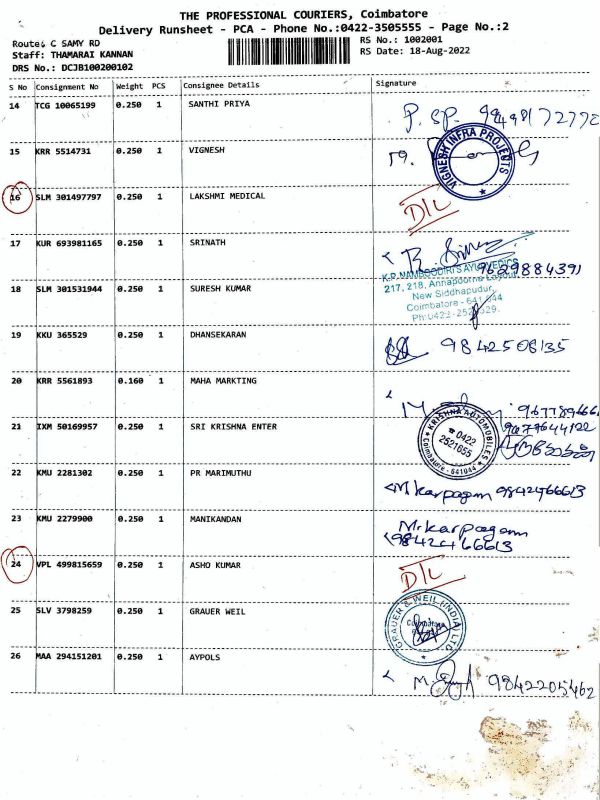 THE PROFESSIONAL COURIERS, Coimbatore
Delivery Runsheet - PCA - Phone No.:0422-3505555 - Page No.:2
Route: C SAMY RD
RS No.: 1002001
Staff: THAMARAI KANNAN
RS Date: 18-Aug-2022
DRS No.: DCJB100200102
S No Consignment No Weight PCS Consignee Details Signature
14 TCG 10065199 0.250 1 SANTHI PRIYA P. SP.
15 KRR 5514731 0.250 1 VIGNESH
VIGNESH INFRA PROJECTS
16 SLM 301497797 0.250 1 LAKSHMI MEDICAL D/L
17 KUR 693981165 0.250 1 SRINATH
9629884391
18 SLM 301531944 0.250 1 SURESH KUMAR
K.P. NAMBOODIRI'S AYURVEDICS
217, 218, Annapoorna Layout,
New Siddhapudur,
Coimbatore - 641 044
19 KKU 365529 0.250 1 DHANSEKARAN 9842508135
20 KRR 5561893 0.160 1 MAHA MARKTING
21 IXM 50169957 0.250 1 SRI KRISHNA ENTER
KRISHNA AUTOMOBILES
0422
2521655
Coimbatore - 641044
9677644122
22 KMU 2281302 0.250 1 PR MARIMUTHU M karpagam 9842466613
23 KMU 2279900 0.250 1 MANIKANDAN M. karpagam
9842466613
24 VPL 499815659 0.250 1 ASHO KUMAR D/L
25 SLV 3798259 0.250 1 GRAUER WEIL
GRAUER & WEIL (INDIA) LTD
26 MAA 294151201 0.250 1 AYPOLS 9842205462